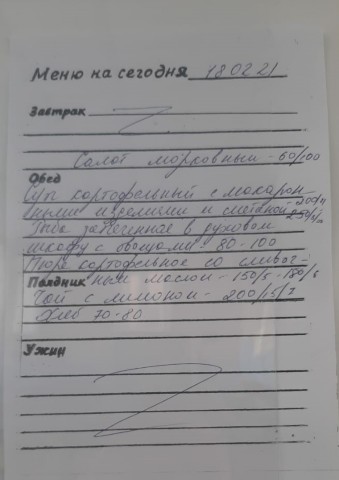 Меню на сегодня 18.02.21
Завтрак
Салат морковный - 60/100
Обед
Суп картофельный с макарон
ными изделиями и сметаной - 200/
250/
запеченная в духовом
шкафу с овощами - 80-100
Пюре картофельное со сливоч-
Полдник ным маслом - 150/5 - 180/5
Чай с лимоном - 200/15/7
Хлеб 70-80
Ужин